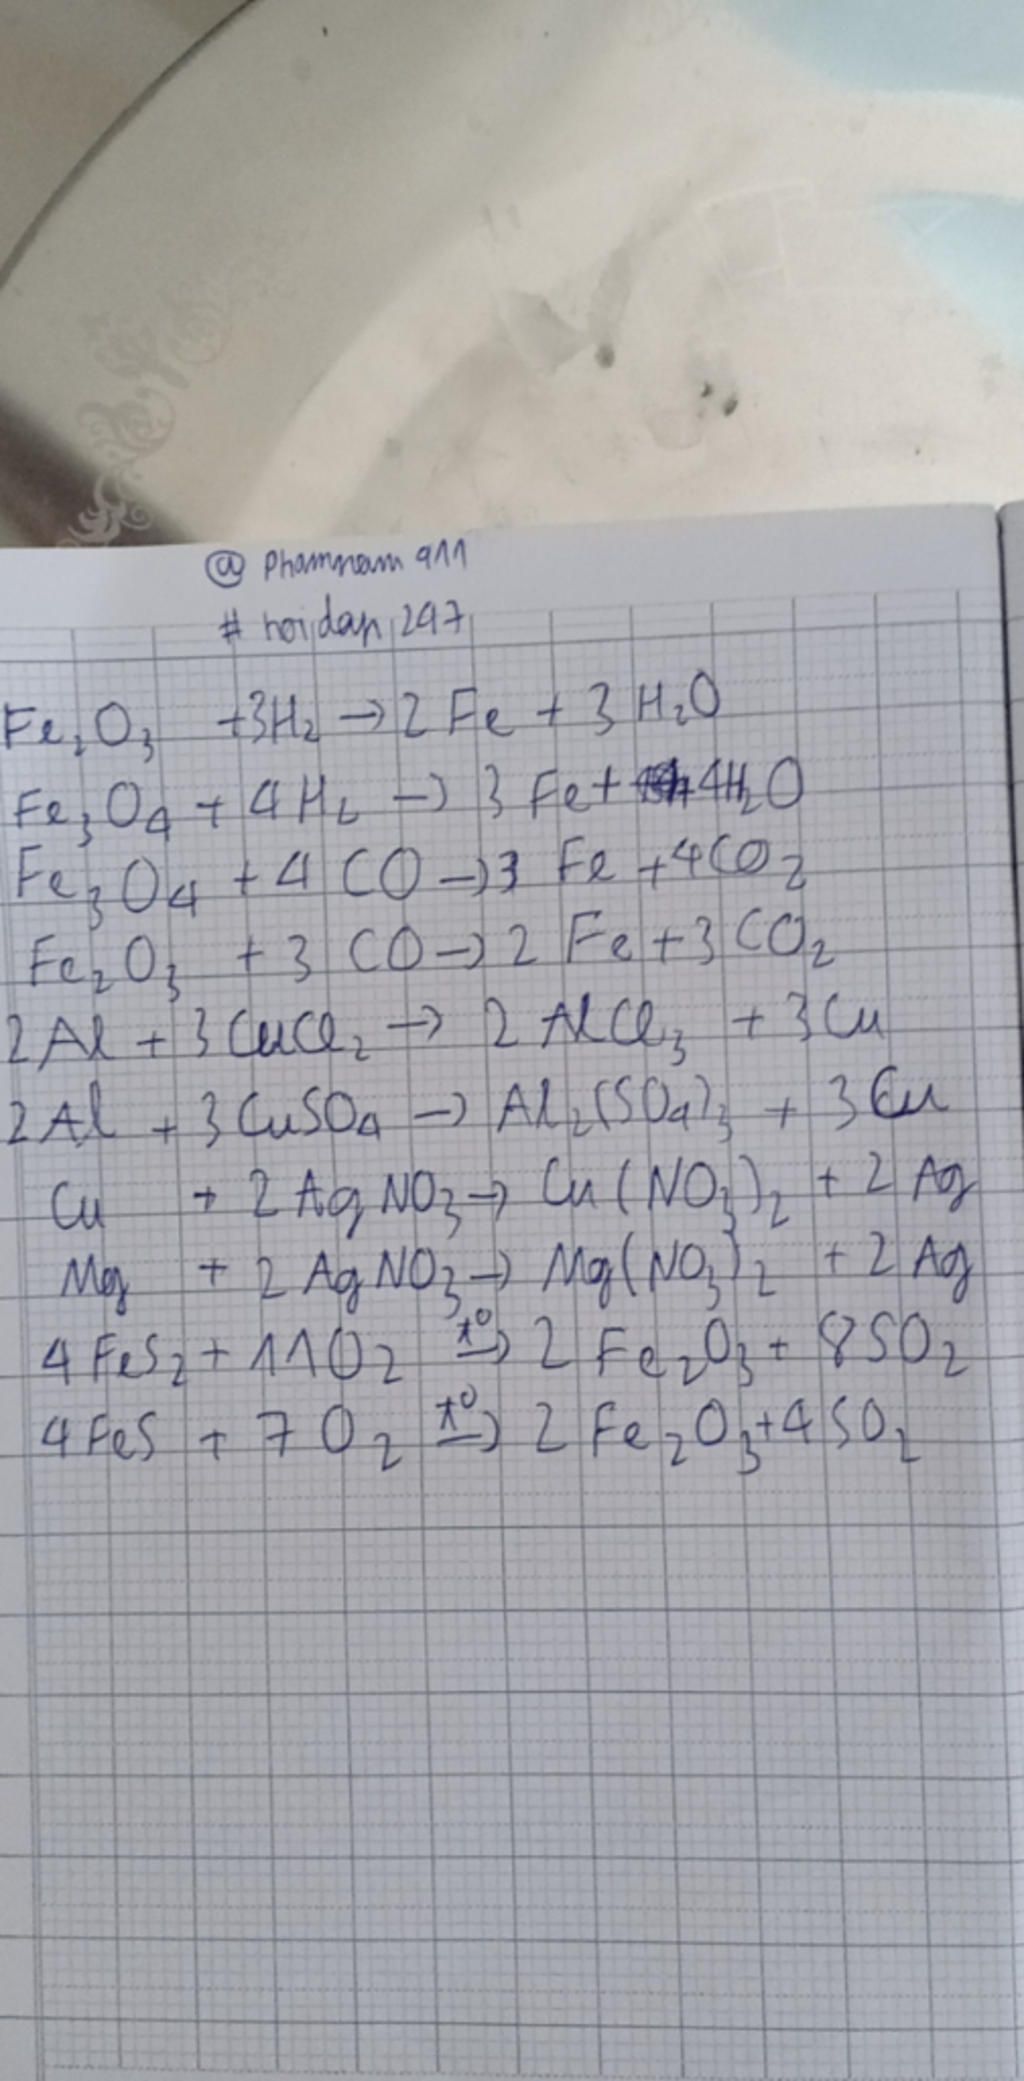 @ Phamnam 911
# hoidap 247
Fe₂O₃ + 3H₂ → 2 Fe + 3 H₂O
Fe₃O₄ + 4 H₂ → 3 Fe + 4H₂O
Fe₃O₄ + 4 CO → 3 Fe + 4CO₂
Fe₂O₃ + 3 CO → 2 Fe + 3 CO₂
2 Al + 3 CuCl₂ → 2 AlCl₃ + 3 Cu
2 Al + 3 CuSO₄ → Al₂(SO₄)₃ + 3 Cu
Cu + 2 AgNO₃ → Cu(NO₃)₂ + 2 Ag
Mg + 2 AgNO₃ → Mg(NO₃)₂ + 2 Ag
4 FeS₂ + 11 O₂ t⁰→ 2 Fe₂O₃ + 8 SO₂
4 FeS + 7 O₂ t⁰→ 2 Fe₂O₃ + 4 SO₂